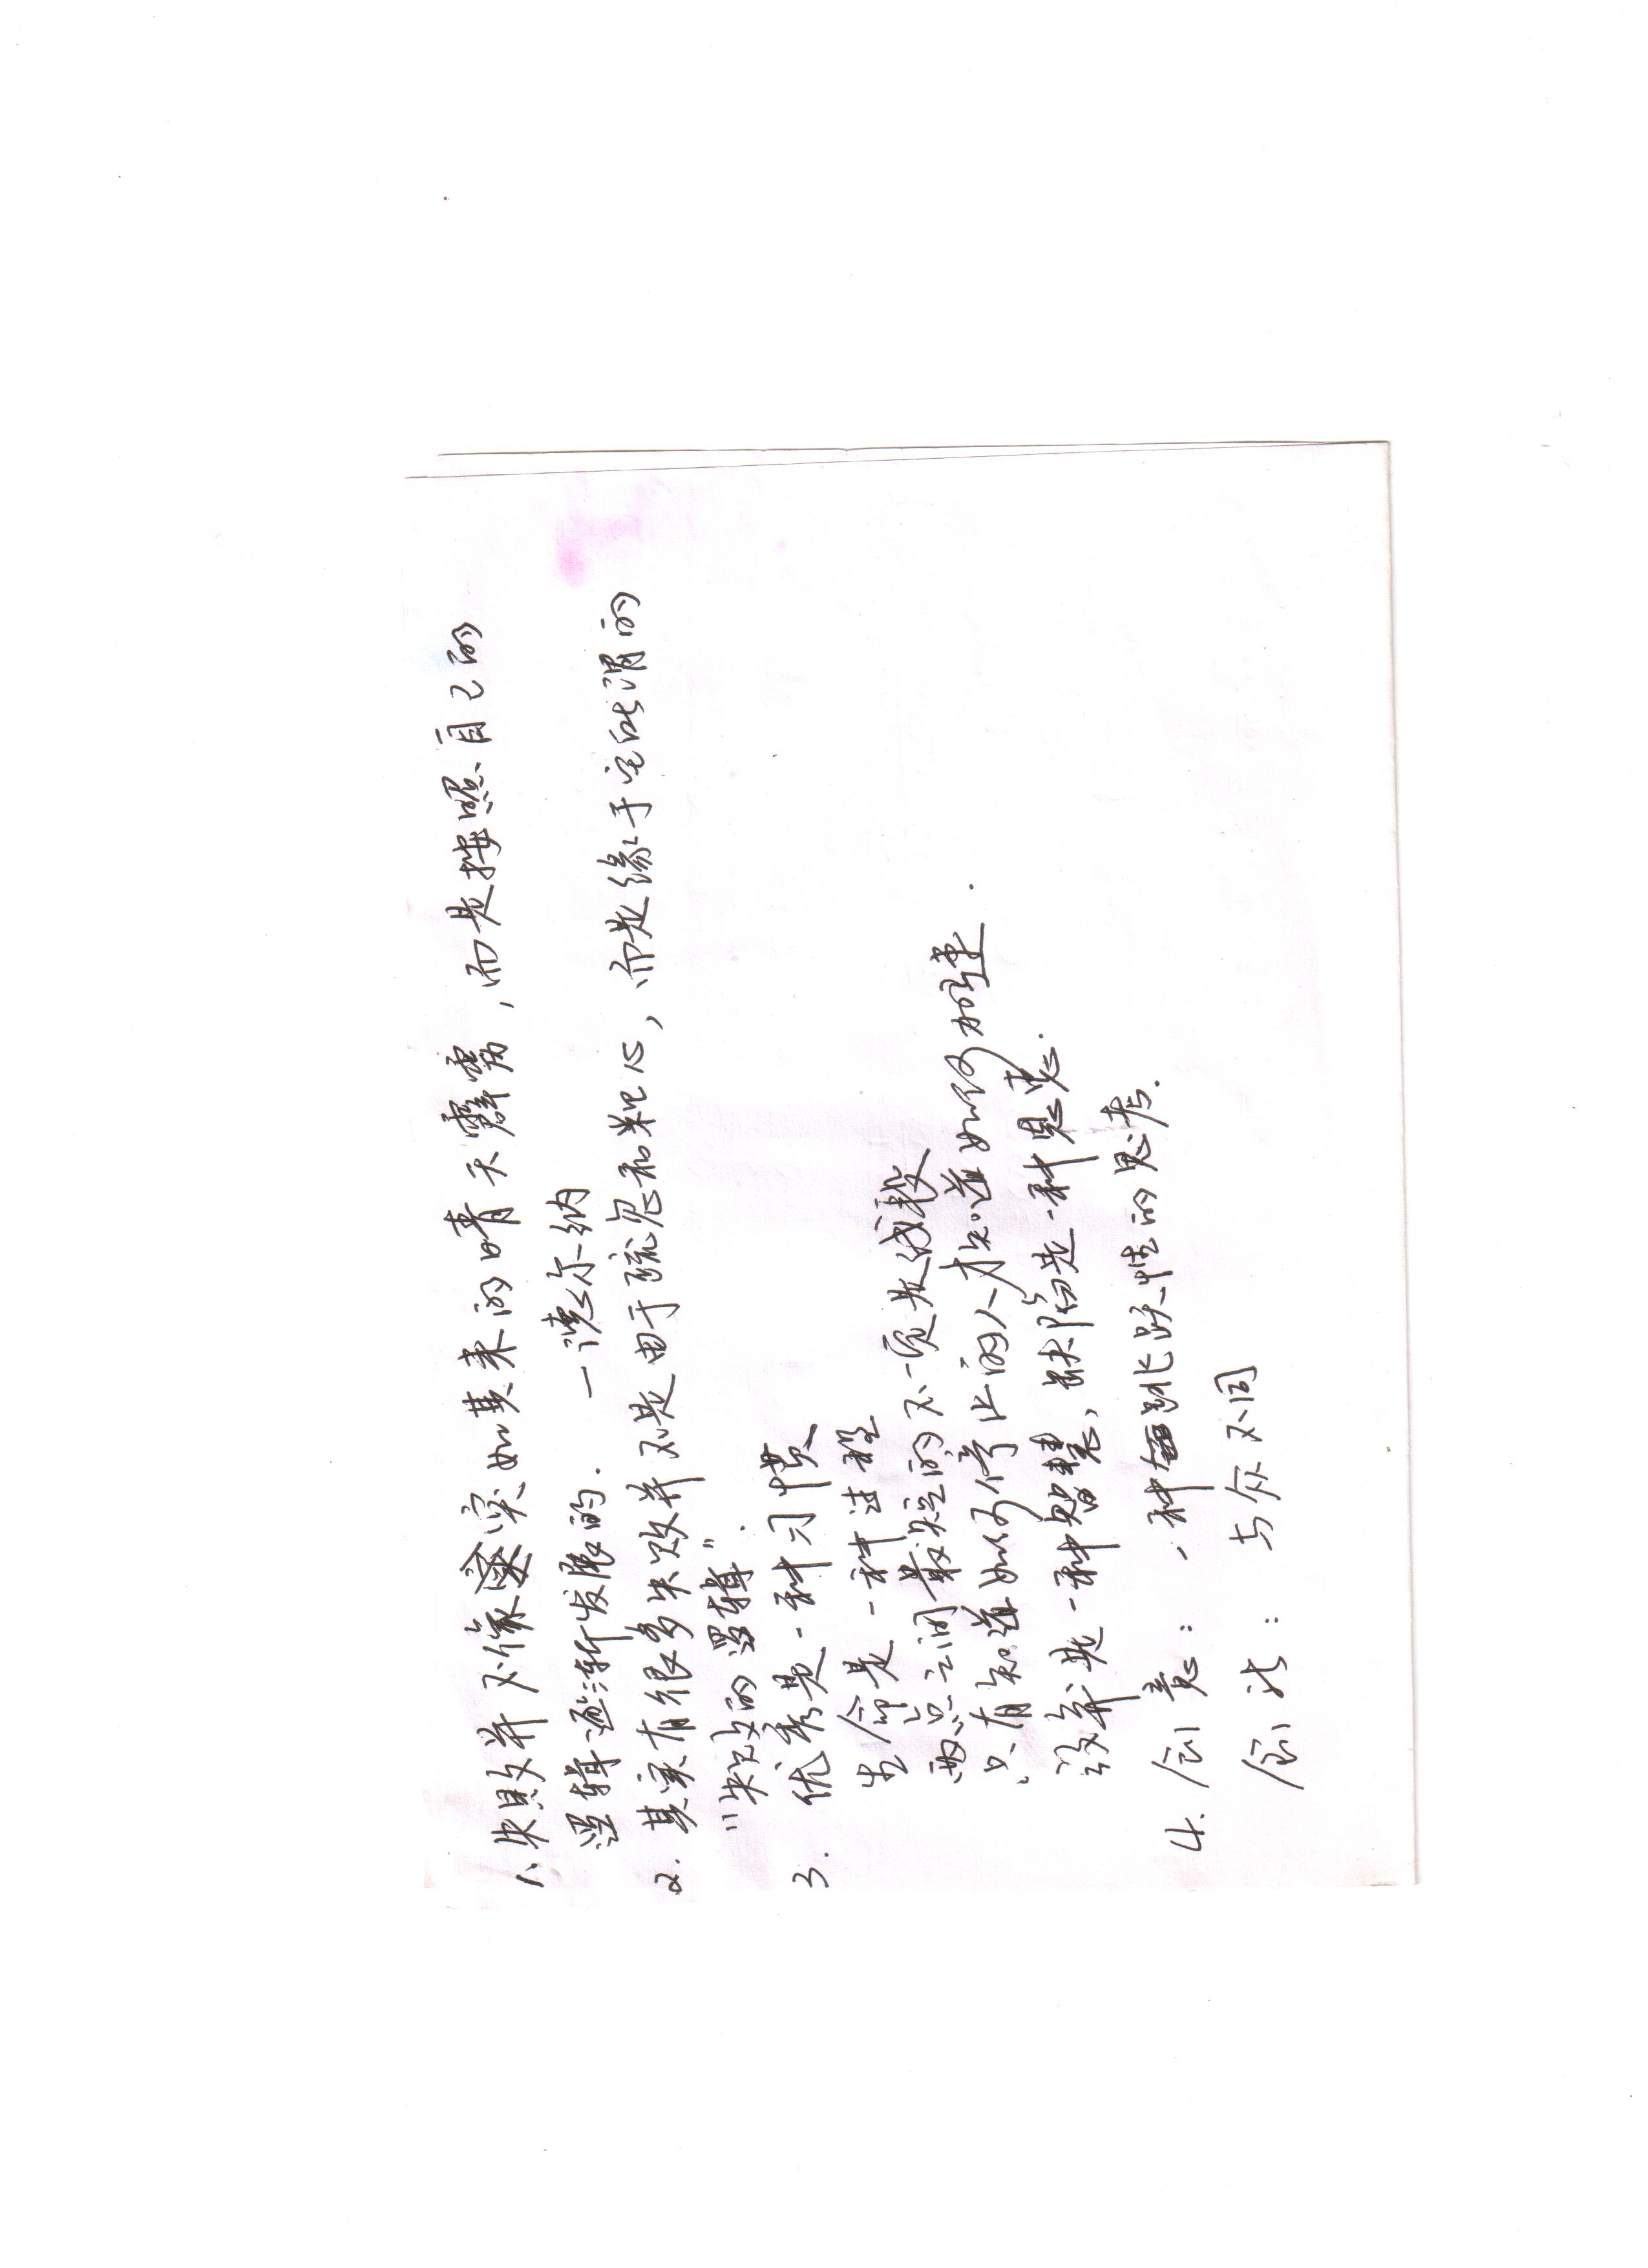 1、失败并不像突如其来的晴天霹雳，而是按照自己的
逻辑逐渐发展的. —德尔纳
2. 其实有很多失败并不是由于疏忽和粗心，而是缘于它所谓的
"失败的逻辑".
3. 优秀是一种习惯
生命是一种过程
两点之间最短的不一定是线段
只有知道如何停止的人才知道如何加速.
放弃是一种智慧，缺陷是一种恩惠.
4. 创意：一种跳跃性的思考.
创新：与众不同